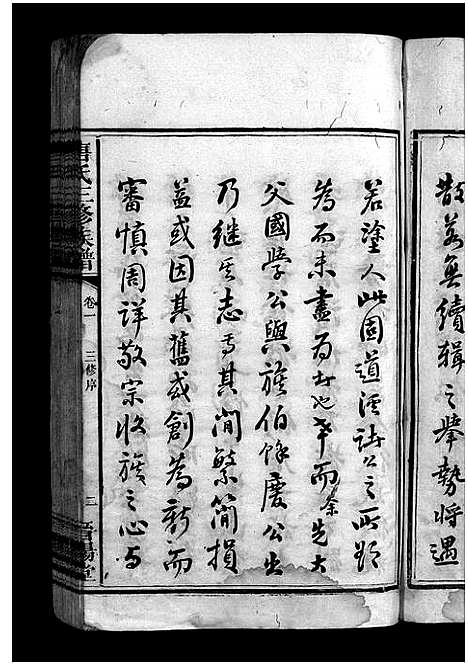 散若無續輯之舉勢將遇
若塗人此固道泾諸公之所欲
為而未盡為者也幸而余先大
父國學公與族伯餘慶公出
乃繼其志焉其澗繁簡損
益或因其舊或創為新而
審慎周詳敬宗收族之心與
唐氏三修族譜
卷一
三修序
二
晋陽堂